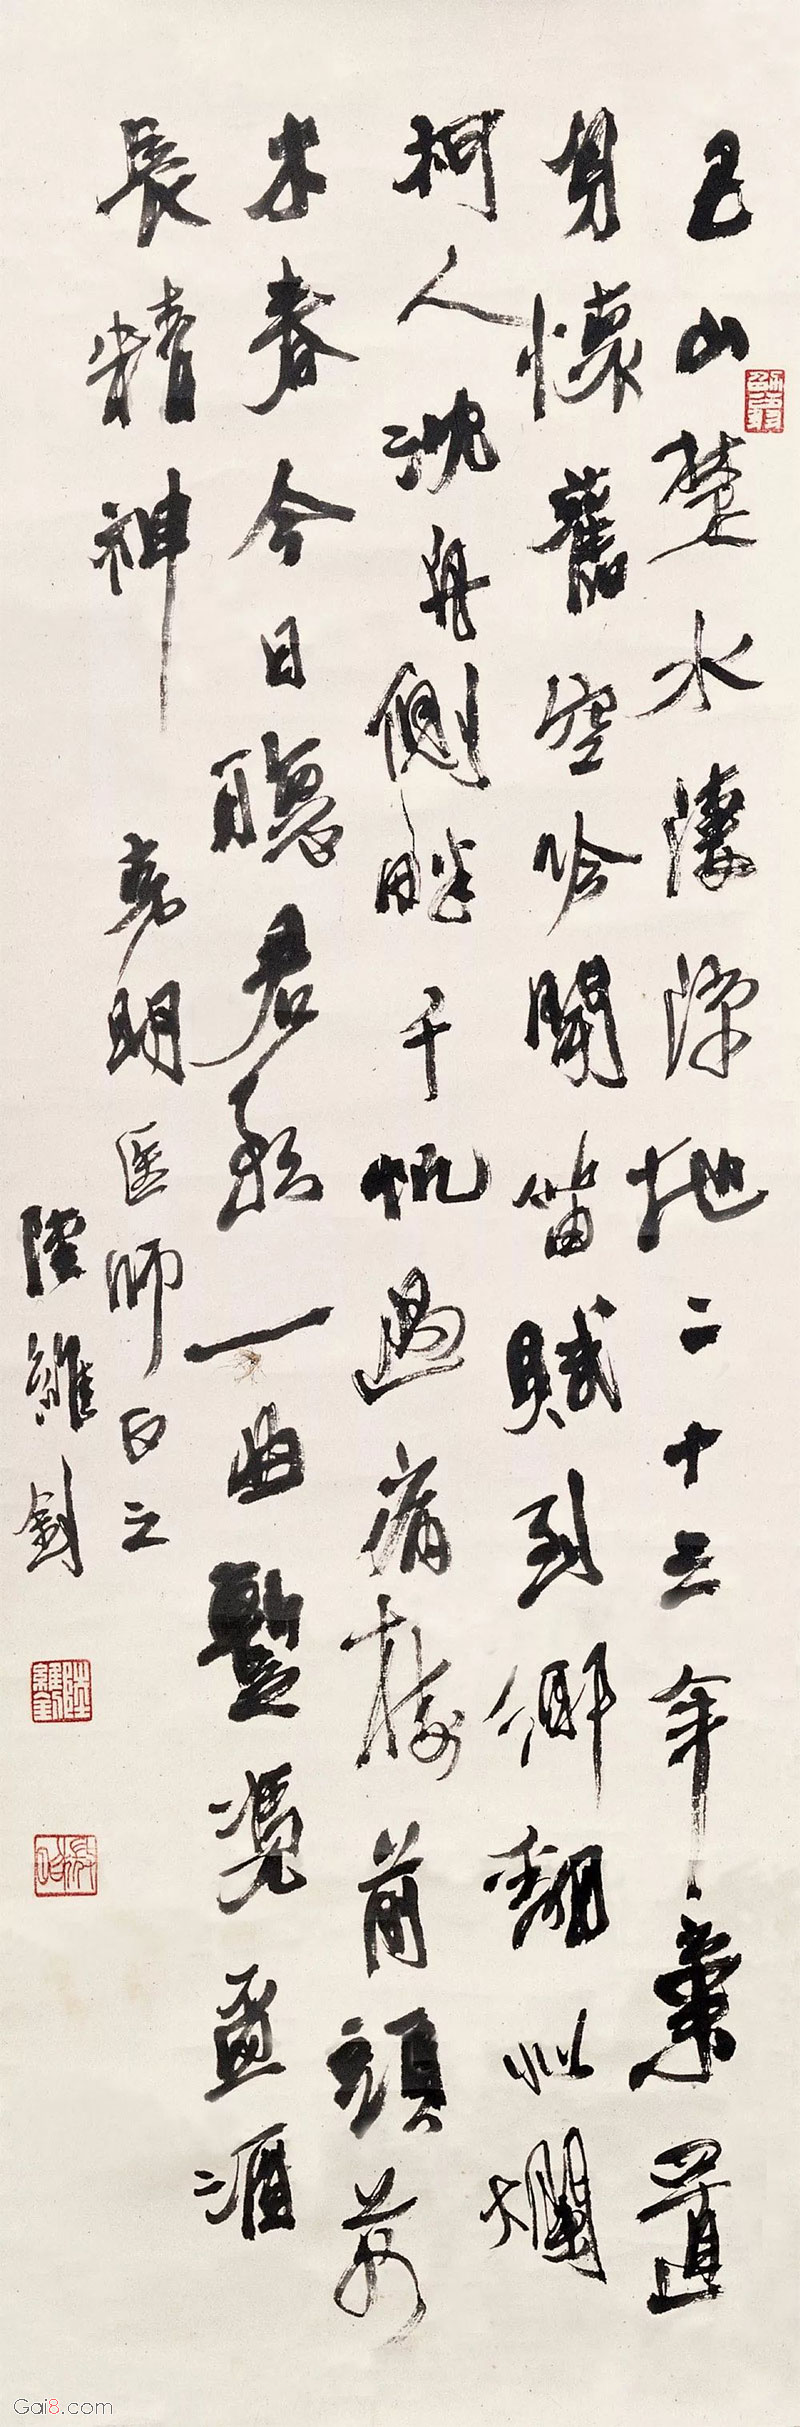 巴山楚水淒涼地二十三年棄置
身懷舊空吟聞笛賦到鄉翻似爛
柯人沈舟側畔千帆過病樹前頭萬
木春今日聽君歌一曲暫凴盃酒
長精神
堯明医師正之
陸維釗
陸維釗
Gai8.com